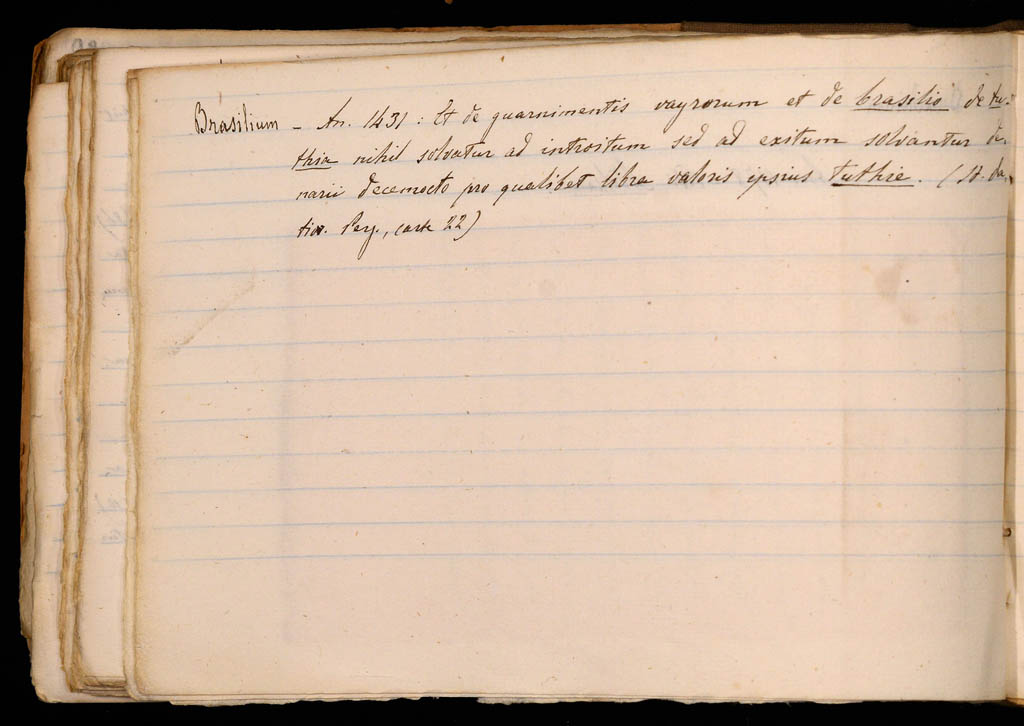 Brasilium – An. 1431: Et de guarnimentis vayrorum et de brasilio de tu-
thia nihil solvatur ad introitum sed ad exitum solvantur de-
narii decemocto pro qualibet libra valoris ipsius tuthie. (St. da-
tior. Perg., carte 22)